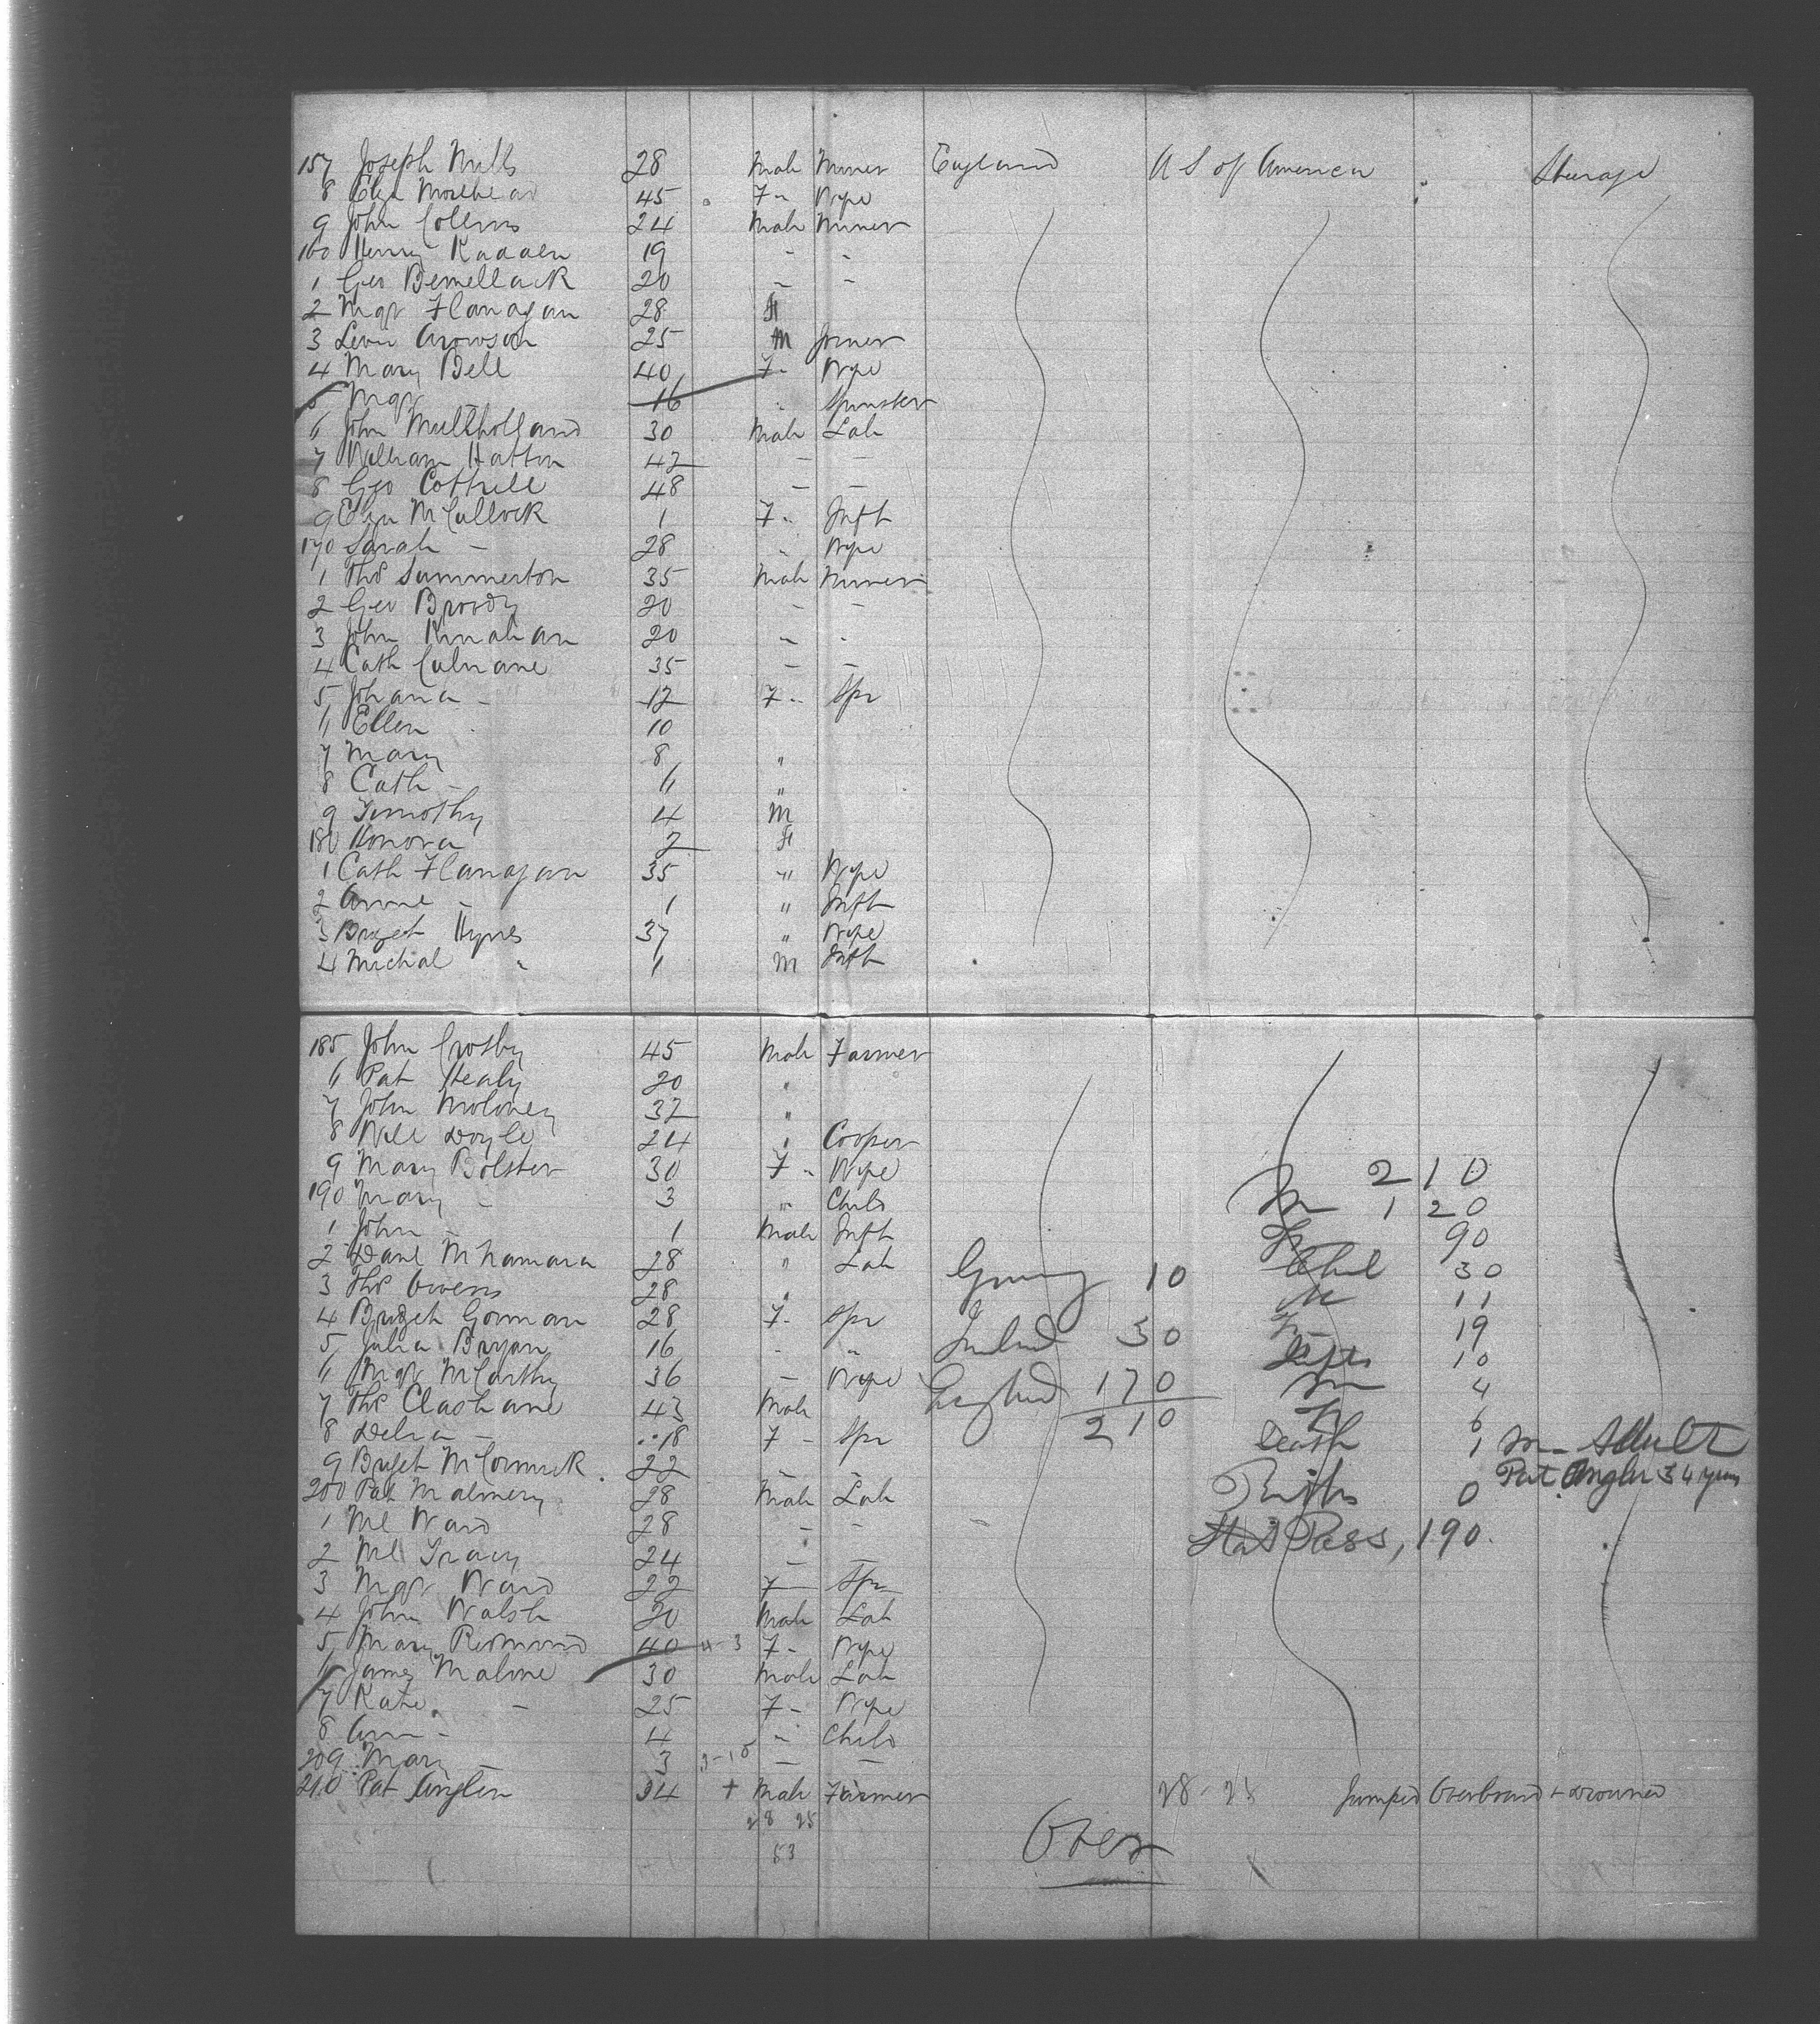 157 Joseph Mills 28 Male Miner England U S of America Steerage
8 Eliz 45 F " Wife
9 John Collins 24 Male Miner
160 Henry 19 " "
1 Geo 20 " "
2 Mgt Flanagan 28 F
3 25 M Joiner
4 Mary Bell 40 F " Wife
5 Mgt - 16 " Spinster
6 John Mullholland 30 Male Lab
7 William Hatton 42 - -
8 Geo Cottrell 48 - -
9 Eliza McCullock 1 F " Inft
170 Sarah - 28 " Wife
1 Thos Summerton 35 Male Miner
2 Geo Broody 20 - -
3 John Kinahan 20 - -
4 Cath Culnane 35 - -
5 Johana - 12 F " Spr
6 Ellen 10
7 Mary 8 "
8 Cath - 6 "
9 Timothy 4 M
180 Honora 2 F
1 Cath Flanagan 35 " Wife
2 Anne - 1 " Inft
3 Brget Hynes 37 " Wife
4 Michal " 1 M Inft
185 John Crosby 45 Male Farmer
6 Pat Healy 20 "
7 John Moloney 32 "
8 Will Doyle 24 " Cooper
9 Mary Bolster 30 F " Wife
210
190 Mary - 3 " Child
M 120
1 John - 1 Male Inft
F 90
2 Danl McNamara 28 " Lab
Germany 10 Chil 30
3 Thos Owens 28 "
M 11
4 Bridget Gorman 28 F - Spr
Ireland 30 F 19
5 Julia Bryan 16 - "
Infts 10
6 Mgt McCarthy 36 - Wife
England 170 M 4
7 Thos Clashane 43 Male
210 F 6
8 Delia - 18 F - Spr
Death 1 M - Adult
9 Briget McCormick 22 - -
Pat Anglin 34 years
200 Pat 28 Male Lab
Births 0
1 Ml Ward 28 - -
Pass, 190.
2 Ml Tracy 24 - -
3 Mgt Ward 22 F Spr
4 John Walsh 20 Male Lab
5 Mary Redmond 40 F - Wife
6 James Malone 30 Male Lab
7 Kate - 25 F - Wife
8 Ann - 4 " Child
209 Mary - 3 - -
210 Pat Anglin 34 + Male Farmer 28-25 Jumped Overboard + drowned
28 25
53
Over